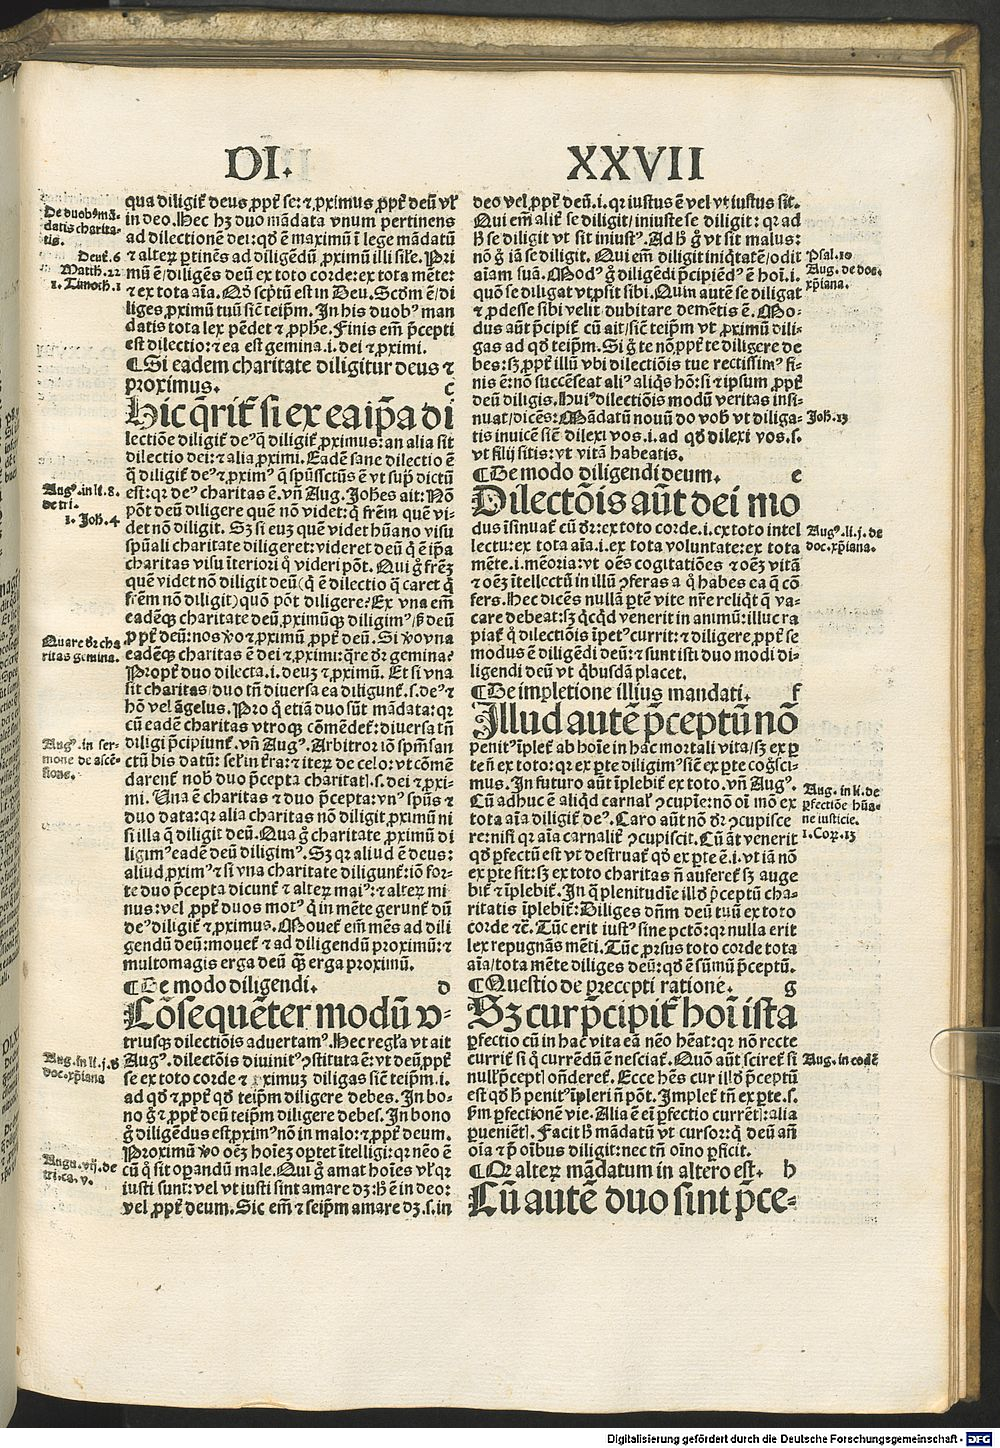 DI. XXVII
De duobꝰ mā-
datis charita-
tis.
Deut̄. 6
Matth. 22
1. Timoth. 1
qua diligit̄ deus ꝓpt̄ se: ⁊ ꝓximus ꝓpt̄ deū vl̄
in deo. Hec hꝫ duo mādata vnum pertinens
ad dilectionē dei: qd̄ ē maximū ī lege mādatū
⁊ alteꝝ ꝑtinēs ad diligēdū ꝓximū illi sil̄e. Pri
mū ē/diligēs deū ex toto corde: ex tota mēte:
⁊ ex tota aīa. Qd̄ sc̄ptū est in Deu. Scd̄m ē/di
liges ꝓximū tuū sic̄ teip̄m. In his duobꝰ man
datis tota lex pēdet ⁊ ꝓphe. Finis em̄ p̄cepti
est dilectio: ⁊ ea est gemina. i. dei ⁊ ꝓximi.
¶ Si eadem charitate diligitur deus ⁊
proximus. c
Hic q̄rit̄ si ex ea ip̄a di
lectiōe diligit̄ deꝰ q̄ diligit̄ ꝓximus: an alia sit
dilectio dei: ⁊ alia ꝓximi. Eadē sane dilectio ē
q̄ diligit̄ deꝰ ⁊ ꝓximꝰ q̄ spūssctūs ē vt sup̄ dictū
est: qr deꝰ charitas ē. vn̄ Aug. Joh̄es ait: Nō
pōt deū diligere quē nō videt: q̄ fr̄em quē vi-
det nō diligit. Sꝫ si euꝫ quē videt hūano visu
spūali charitate diligeret: videret deū q̄ ē ip̄a
charitas visu īteriori q̄ videri pōt. Qui g̊ fr̄eꝫ
quē videt nō diligit deū (q̄ ē dilectio q̄ caret q̄
fr̄em nō diligit) quō pōt diligere? Ex vna em̄
eadēqꝫ charitate deū ꝓximūqꝫ diligimꝰ/sꝫ deū
ꝓpt̄ deū: nos v̊o ⁊ ꝓximū ꝓpt̄ deū. Si v̊o vna
eadēqꝫ charitas ē dei ⁊ ꝓximi: q̄re dr̄ gemina?
Propt̄ duo dilecta. i. deuꝫ ⁊ ꝓximū. Et si vna
sit charitas/duo tn̄ diuersa ea diligunt̄. s. deꝰ ⁊
hō vel āgelus. Pro q̄ etiā duo sūt mādata: qr
cū eadē charitas vtroqꝫ cōmēdet̄: diuersa tn̄
diligi p̄cipiunt̄. vn̄ Augꝰ. Arbitror iō spm̄ san
ctū bis datū: sel̄ in t̄ra: ⁊ iteꝝ de celo: vt cōmē
darent̄ nob̄ duo p̄cepta charitat̄. s. dei ⁊ ꝓxi-
mi. Una ē charitas ⁊ duo p̄cepta: vnꝰ spūs ⁊
duo data: qr alia charitas nō diligit ꝓximū ni
si illa q̄ diligit deū. Qua g̊ charitate ꝓximū di
ligimꝰ eadē deū diligimꝰ. Sꝫ qr aliud ē deus:
aliud ꝓximꝰ ⁊ si vna charitate diligunt̄: iō for-
te duo p̄cepta dicunt̄ ⁊ alteꝝ maiꝰ: ⁊ alteꝝ mi
nus: vel ꝓpt̄ duos motꝰ q̄ in mēte gerunt̄ dū
deꝰ diligit̄ ⁊ ꝓximus. Mouet̄ em̄ mēs ad dili
gendū deū: mouet̄ ⁊ ad diligendū proximū: ⁊
multomagis erga deū qꝫ erga proximū.
¶ De modo diligendi. d
Cōsequēter modū v-
triusqꝫ dilectiōis aduertamꝰ. Hec regl̄a vt ait
Augꝰ. dilectōis diuinitꝰ ꝯstituta ē: vt deū ꝓpt̄
se ex toto corde ⁊ ꝓximuꝫ diligas sic̄ teip̄m. i.
ad qd̄ ⁊ ꝓpt̄ qd̄ teip̄m diligere debes. In bo-
no g̊ ⁊ ꝓpt̄ deū teip̄m diligere debes. In bono
g̊ diligēdus est ꝓximꝰ nō in malo: ⁊ ꝓpt̄ deum.
Proximū v̊o oēꝫ hoīeꝫ optet ītelligi: qr nēo ē
cū q̄ sit oꝑandū male. Qui g̊ amat hoīes vl̄ qr
iusti sunt: vel vt iusti sint amare dꝫ: h̄ ē in deo:
vel ꝓpt̄ deum. Sic em̄ ⁊ seip̄m amare dꝫ. s. in
Augꝰ. in li. 8.
de tri.
1. Joh. 4
Quare dr̄ cha
ritas gemina.
Augꝰ. in ser-
mone de ascē-
sione.
Aug. in li. j. d̄
doc. xp̄iana
Augu. vij. de
tri. ca. v.
deo vel ꝓpt̄ deū. i. qr iustus ē vel vt iustus sit.
Qui em̄ alit̄ se diligit/iniuste se diligit: qr ad
h̄ se diligit vt sit iniustꝰ. Ad h̄ g̊ vt sit malus:
nō g̊ iā se diligit. Qui em̄ diligit iniq̄tatē/odit
aīam suā. Modꝰ g̊ diligēdi p̄cipiēdꝰ ē hoī. i.
quō se diligat vt ꝓsit sibi. Quin autē se diligat
⁊ ꝓdesse sibi velit dubitare demētis ē. Mo-
dus aūt p̄cipit̄ cū ait/sic̄ teip̄m vt ꝓximū dili-
gas ad qd̄ teip̄m. Si g̊ te nō ꝓpt̄ te diligere de
bes: sꝫ ꝓpt̄ illū vbi dilectiōis tue rectissimꝰ fi-
nis ē: nō succēseat aliꝰ aliq̄s hō: si ⁊ ipsum ꝓpt̄
deū diligis. Huiꝰ dilectiōis modū veritas insi-
nuat/dicēs: Mādatū nouū do vob̄ vt diliga-
tis inuicē sic̄ dilexi vos. i. ad qd̄ dilexi vos. s.
vt filij sitis: vt vitā habeatis.
¶ De modo diligendi deum. e
Dilectōis aūt dei mo
dus īsinuat̄ cū dr̄: ex toto corde. i. ex toto intel
lectu: ex tota aīa. i. ex tota voluntate: ex tota
mēte. i. mēoria: vt oēs cogitatiōes ⁊ oēꝫ vitā
⁊ oēꝫ ītellectū in illū ꝯferas a q̄ habes ea q̄ cō
fers. Hec dicēs nullā ꝑtē vite nr̄e reliq̄t q̄ va-
care debeat: sꝫ q̄cqd̄ venerit in animū: illuc ra
piat̄ q̄ dilectiōis īpetꝰ currit: ⁊ diligere ꝓpt̄ se
modus ē diligēdi deū: ⁊ sunt isti duo modi di-
ligendi deū vt q̄busdā placet.
¶ De impletione illius mandati. f
Illud autē p̄ceptū nō
penitꝰ īplet̄ ab hoīe in hac mortali vita/sꝫ ex ꝑ
te nō ex toto: qr ex ꝑte diligimꝰ sic̄ ex ꝑte cog̊sci-
mus. In futuro aūt īplebit̄ ex toto. vn̄ Augꝰ.
Cū adhuc ē aliqd̄ carnal̄ ꝯcupīe: nō oī mō ex
tota aīa diligit̄ deꝰ. Caro aūt nō dr̄ ꝯcupisce
re: nisi qr aīa carnalit̄ ꝯcupiscit. Cū āt venerit
qd̄ ꝑfectū est vt destruat̄ qd̄ ex ꝑte ē. i. vt iā nō
ex ꝑte sit: sꝫ ex toto charitas n̄ auferet̄ sꝫ auge
bit̄ ⁊ īplebit̄. In q̄ plenitudīe illd̄ p̄ceptū cha-
ritatis īplebit̄: Diliges dn̄m deū tuū ex toto
corde ⁊c̄. Tūc erit iustꝰ sine pctō: qr nulla erit
lex repugnās mēti. Tūc ꝓrsus toto corde tota
aīa/tota mēte diliges deū: qd̄ ē sūmū p̄ceptū.
¶ Questio de precepti ratione. g
Sꝫ cur p̄cipit̄ hoī ista
ꝑfectio cū in hac vita eā nēo hēat: qr nō recte
currit̄ si q̄ currēdū ē nesciat̄. Quō aūt sciret̄ si
null̄ p̄cept̄ on̄deret̄. Ecce hēs cur illd̄ p̄ceptū
est qd̄ h̄ penitꝰ īpleri n̄ pōt. Implet̄ tn̄ ex ꝑte. s.
ẜm ꝑfectionē vie. Alia ē ei ꝑfectio currēt̄: alia
ꝑueniēt̄. Facit h̄ mādatū vt cursor: q̄ deū an̄
oīa ⁊ p̄ oībus diligit: nec tn̄ oīno ꝑficit.
¶ Qr alteꝝ mādatum in altero est. h
Cū autē duo sint p̄ce-
Psal. 10
Aug. de doc.
xp̄iana.
Joh. 13
Augꝰ. li. j. de
doc. xp̄iana.
Aug. in li. de
ꝑfectiōe hūa-
ne iusticie.
1. Coꝝ. 13
Aug. in eodē
Digitalisierung gefördert durch die Deutsche Forschungsgemeinschaft - DFG